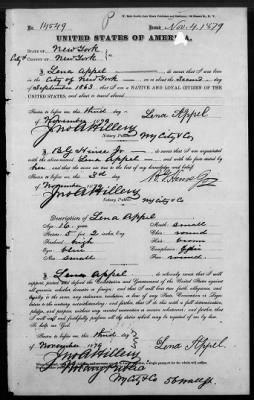 No. 14549 P Nov. 4. 1879
UNITED STATES OF AMERICA.
STATE OF New York
City & COUNTY OF New York
I, Lena Appel, do swear that I was born
in the City of New York on or about the Second day
of September 1863, that I am a NATIVE AND LOYAL CITIZEN OF THE
UNITED STATES, and about to travel abroad.
Sworn to before me this third day
of November 1879 Lena Appel
Jno A Hillery
Notary Public. NY City & Co
above-named Lena Appel and
Sworn to before me this 3d day
of November 1879
Jno A Hillery
Notary Public. NY City & Co
Description of Lena Appel
Age, 16 years Mouth, small
Stature, 5 feet 2 inches Chin, round
Forehead, high Hair, brown
Eyes, blue Complexion,
Nose, small Face, round
I, Lena Appel, do solemnly swear that I will
support, protect, and defend the Constitution and Government of the United States against
all enemies, whether domestic or foreign; and that I will bear true faith, allegiance, and
loyalty to the same, any ordinance, resolution, or law of any State Convention or Legislature
to the contrary notwithstanding; and further, that I do this with a full determination,
pledge, and purpose, without any mental reservation or evasion whatsoever; and further, that
I will well and faithfully perform all the duties which may be required of me by law.
So help me God.
Sworn to before me this third day
of November 1879 Lena Appel
Jno A Hillery
Notary Public
NY City & Co